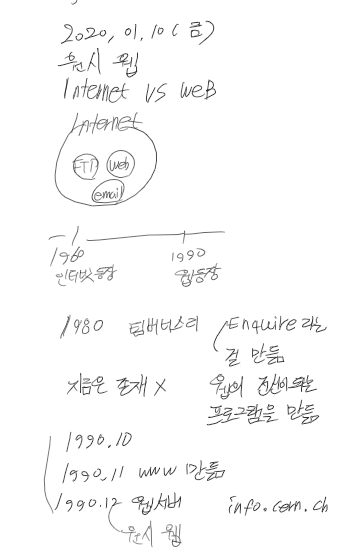 2020, 01, 10 (금)
원시 웹
Internet VS WeB
Internet
FTP web
email
1960 1990
인터넷등장 웹등장
1980 팀버너스리 Enquire라는
걸 만듦
지금은 존재 X 웹의 전신이되는
프로그램을 만듦
1990.10
1990.11 www 만듦
1990.12 웹서버 info.com.ch
원시 웹